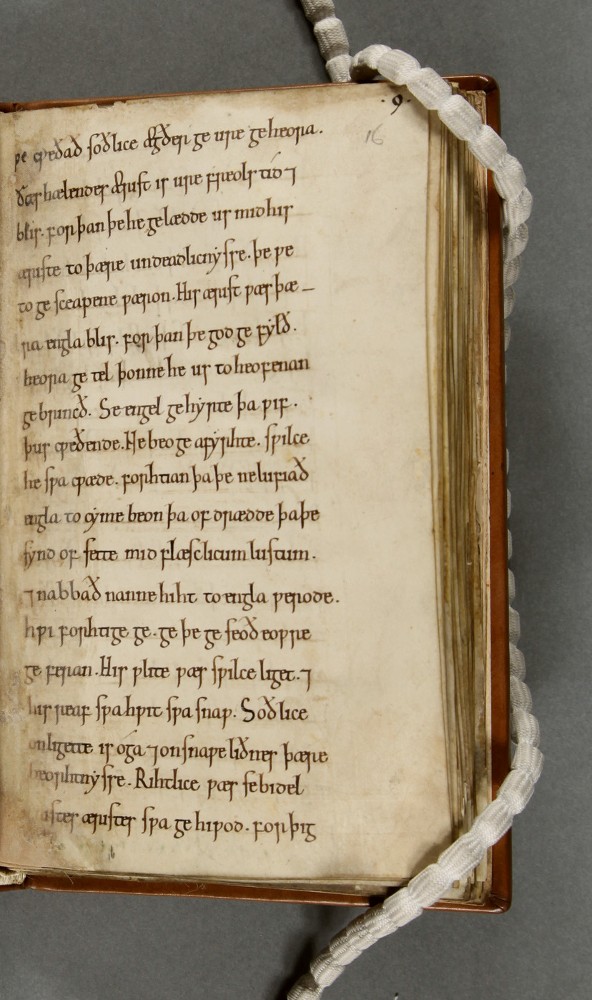 .9.
16
pe cƿeðað soðlice ægðer ge ure ge heora.
ðæs hælendes ærist is ure freols tid ⁊
blis. forþan þe he gelædde us mid his
æriste to þære undeadlicnysse. þe ƿe
to ge sceapene ƿæron. His ærist ƿæs þæ–
ra engla blis. for þan þe god ge fylð.
heora ge tel þonne he us to heofenan
ge brincð. Se engel ge hyrte þa ƿif.
þus cƿeðende. Ne beo ge afyrihte. sƿilce
he sƿa cƿæde. forihtian þa þe ne lufiað
engla to cyme beon þa of drædde þa þe
synd of sette mid flæsclicum lustum.
⁊ nabbað nanne hiht to engla ƿerode.
hƿi forihtige ge. ge þe ge seoð eoƿre
ge feran. His ƿlite ƿæs sƿilce liget. ⁊
his reaf sƿa hƿit sƿa snaƿ. Soðlice
on ligette is oga ⁊ on snaƿe liðnes þære
beorihtnysse. Rihtlice ƿæs se bidel
cristes æristes sƿa ge hiƿod. for þig